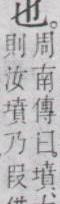 也。
周南傳曰。墳、
則汝墳乃叚